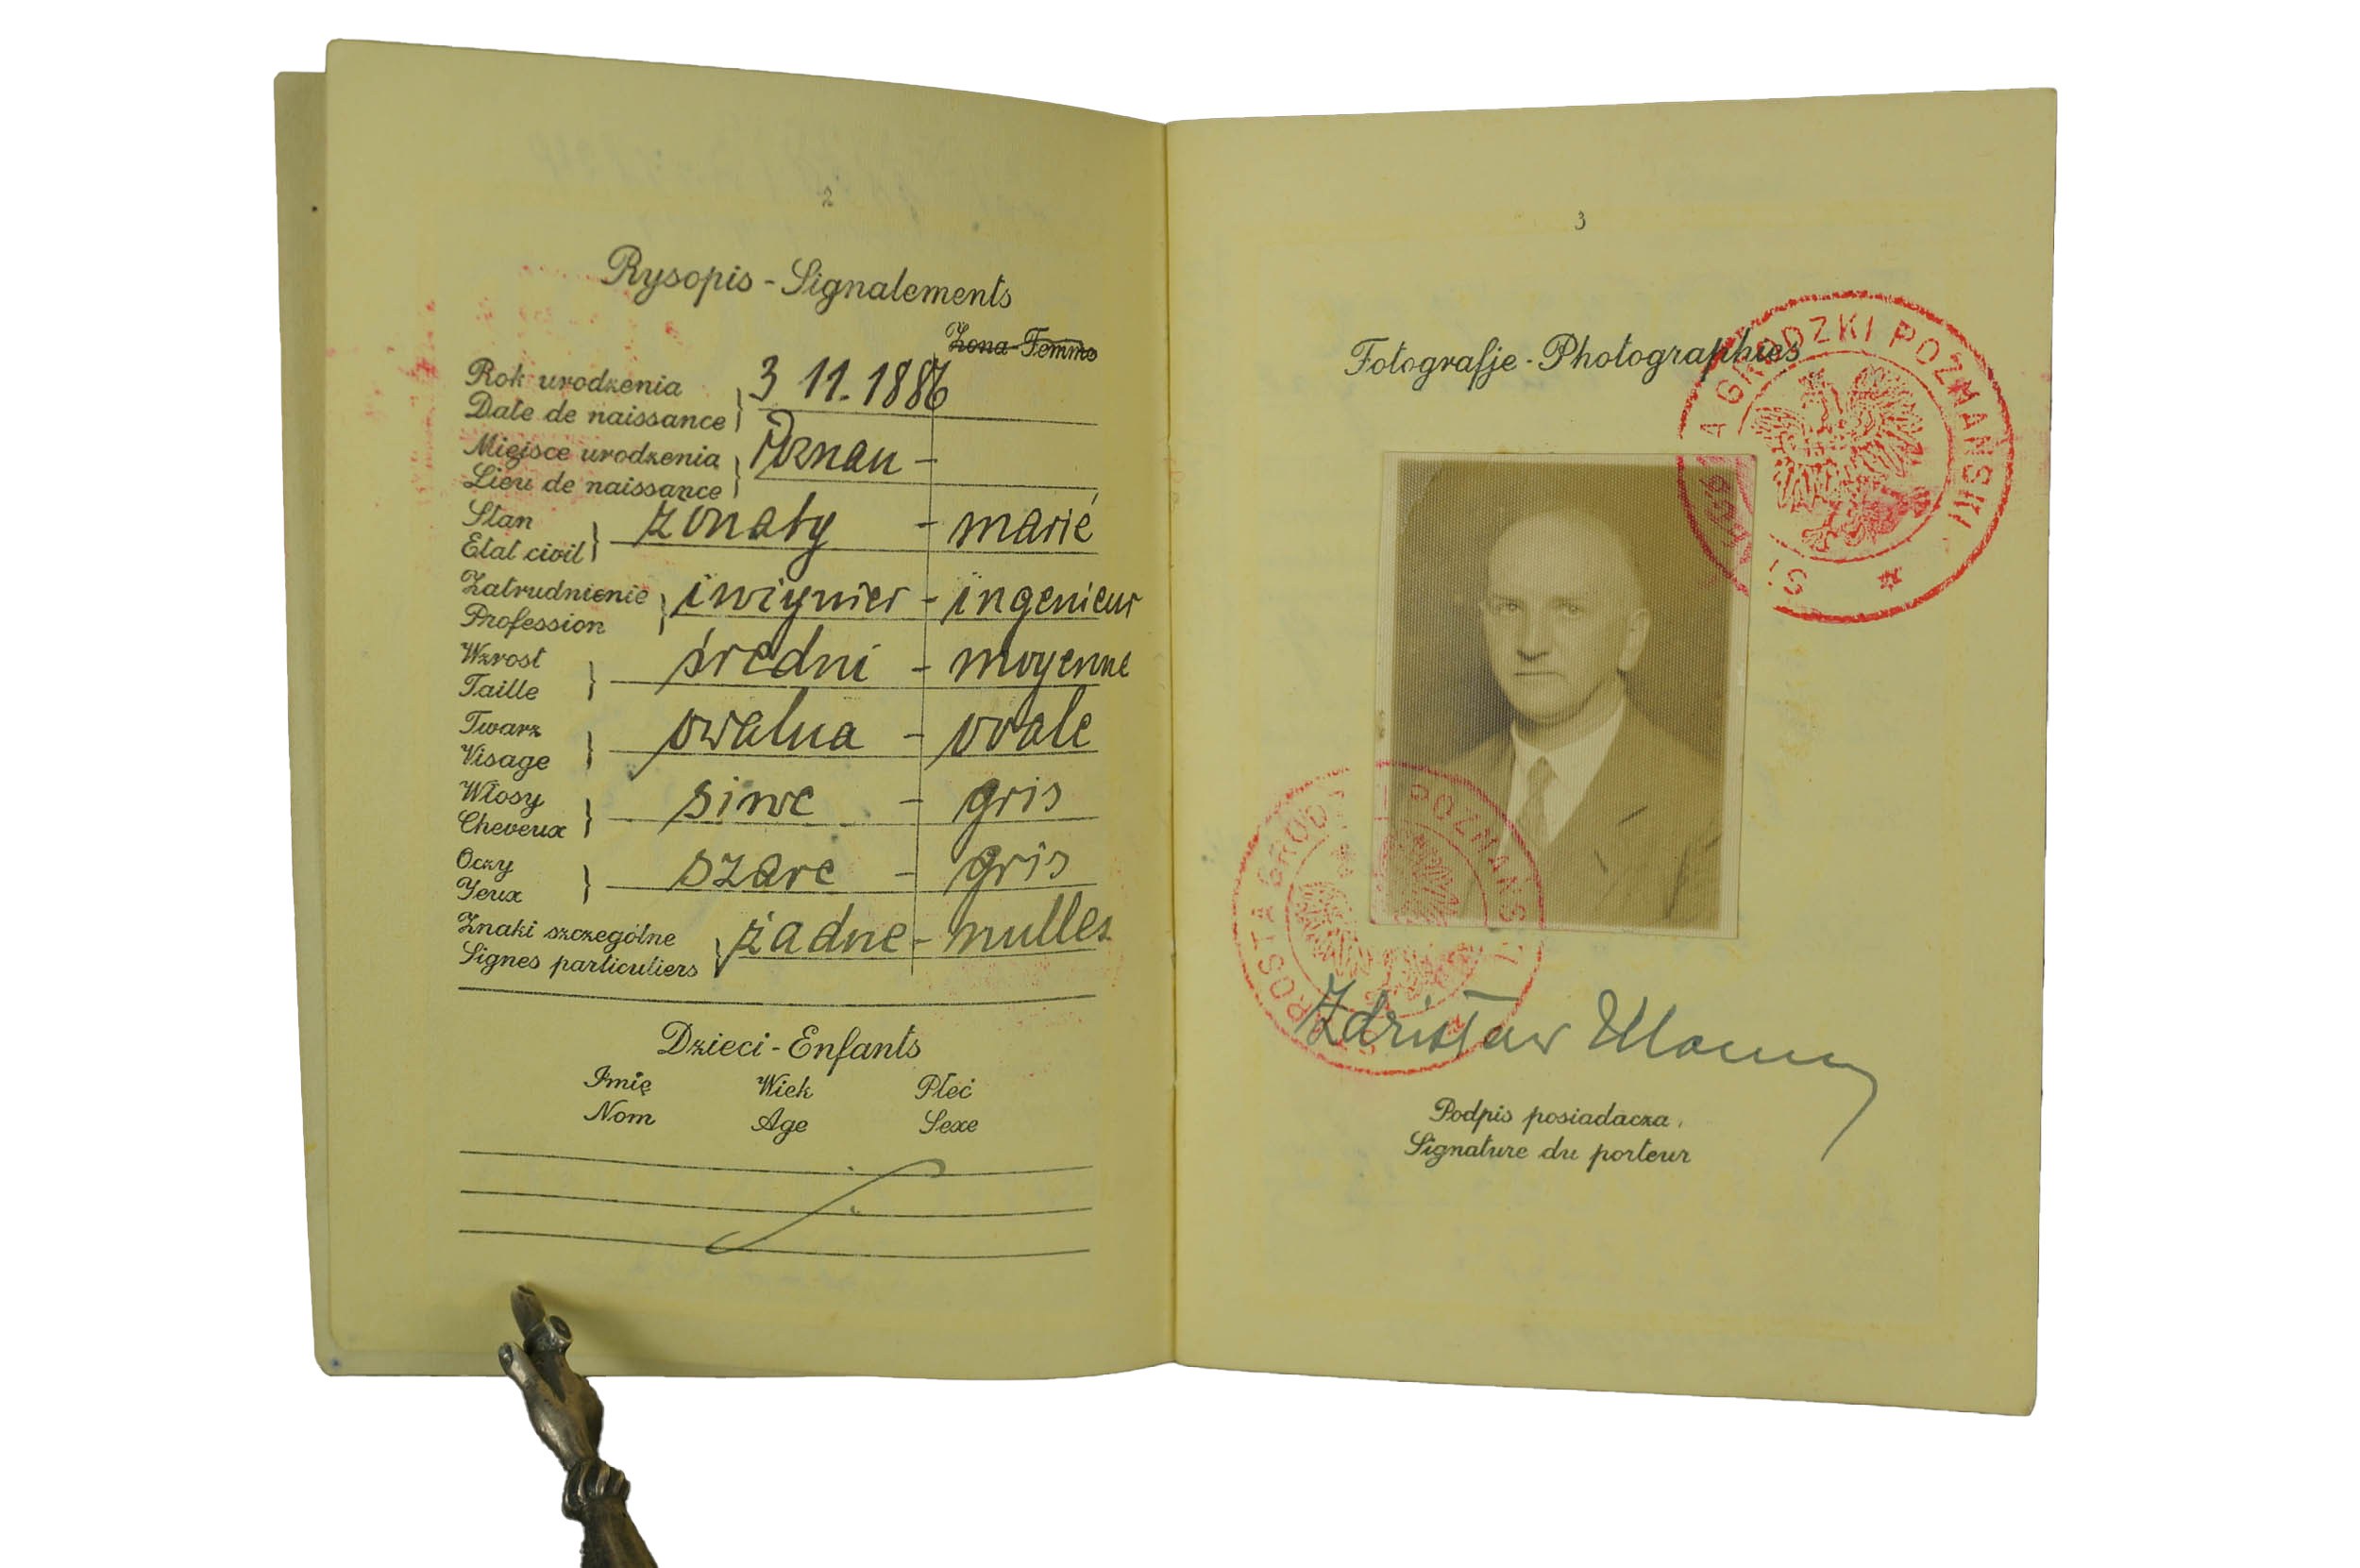 2
Rysopis - Signalements
Żona - Femme
Rok urodzenia
Date de naissance } 3 11. 1886
Miejsce urodzenia
Lieu de naissance } Poznań -
Stan
Etat civil } żonaty - marié
Zatrudnienie
Profession } inżynier - ingenieur
Wzrost
Taille } średni - moyenne
Twarz
Visage } owalna - ovale
Włosy
Cheveux } siwe - gris
Oczy
Yeux } szare - gris
Znaki szczególne
Signes particuliers } żadne - nulles
Dzieci - Enfants
Imię Wiek Płeć
Nom Age Sexe
3
Fotografje - Photographies
STAROSTA GRODZKI POZNAŃSKI
STAROSTA GRODZKI POZNAŃSKI
Zdzisław
Podpis posiadacza
Signature du porteur